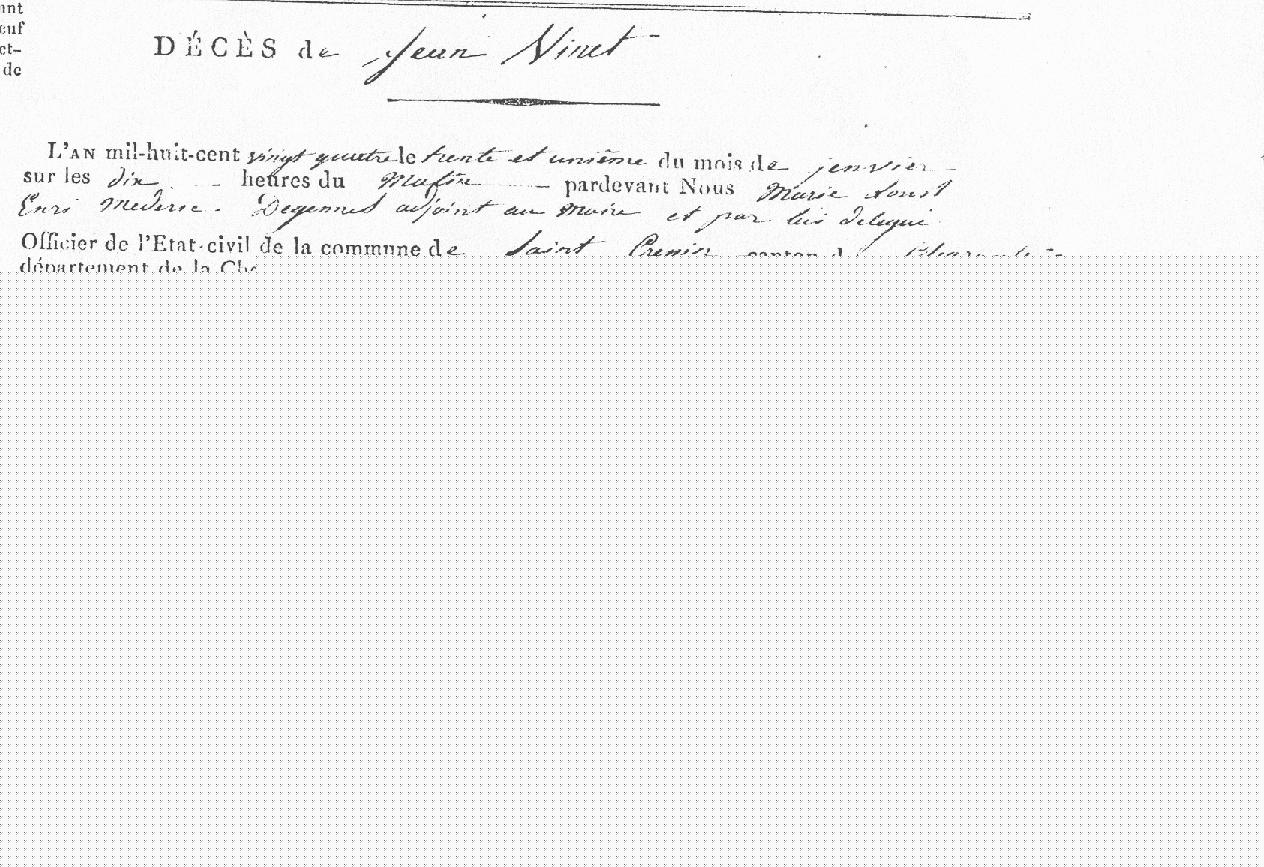 ant
euf
ct-
de
DÉCÈS de Jean Vinet
L'AN mil-huit-cent vingt quatre le trente et unième du mois de jenvier
sur les dix heures du Matin pardevant Nous Marie Louis
Enri Mederic Degennes adjoint au Maire et par lui delegué
Officier de l'Etat-civil de la commune de Saint canton d
département de la Ch